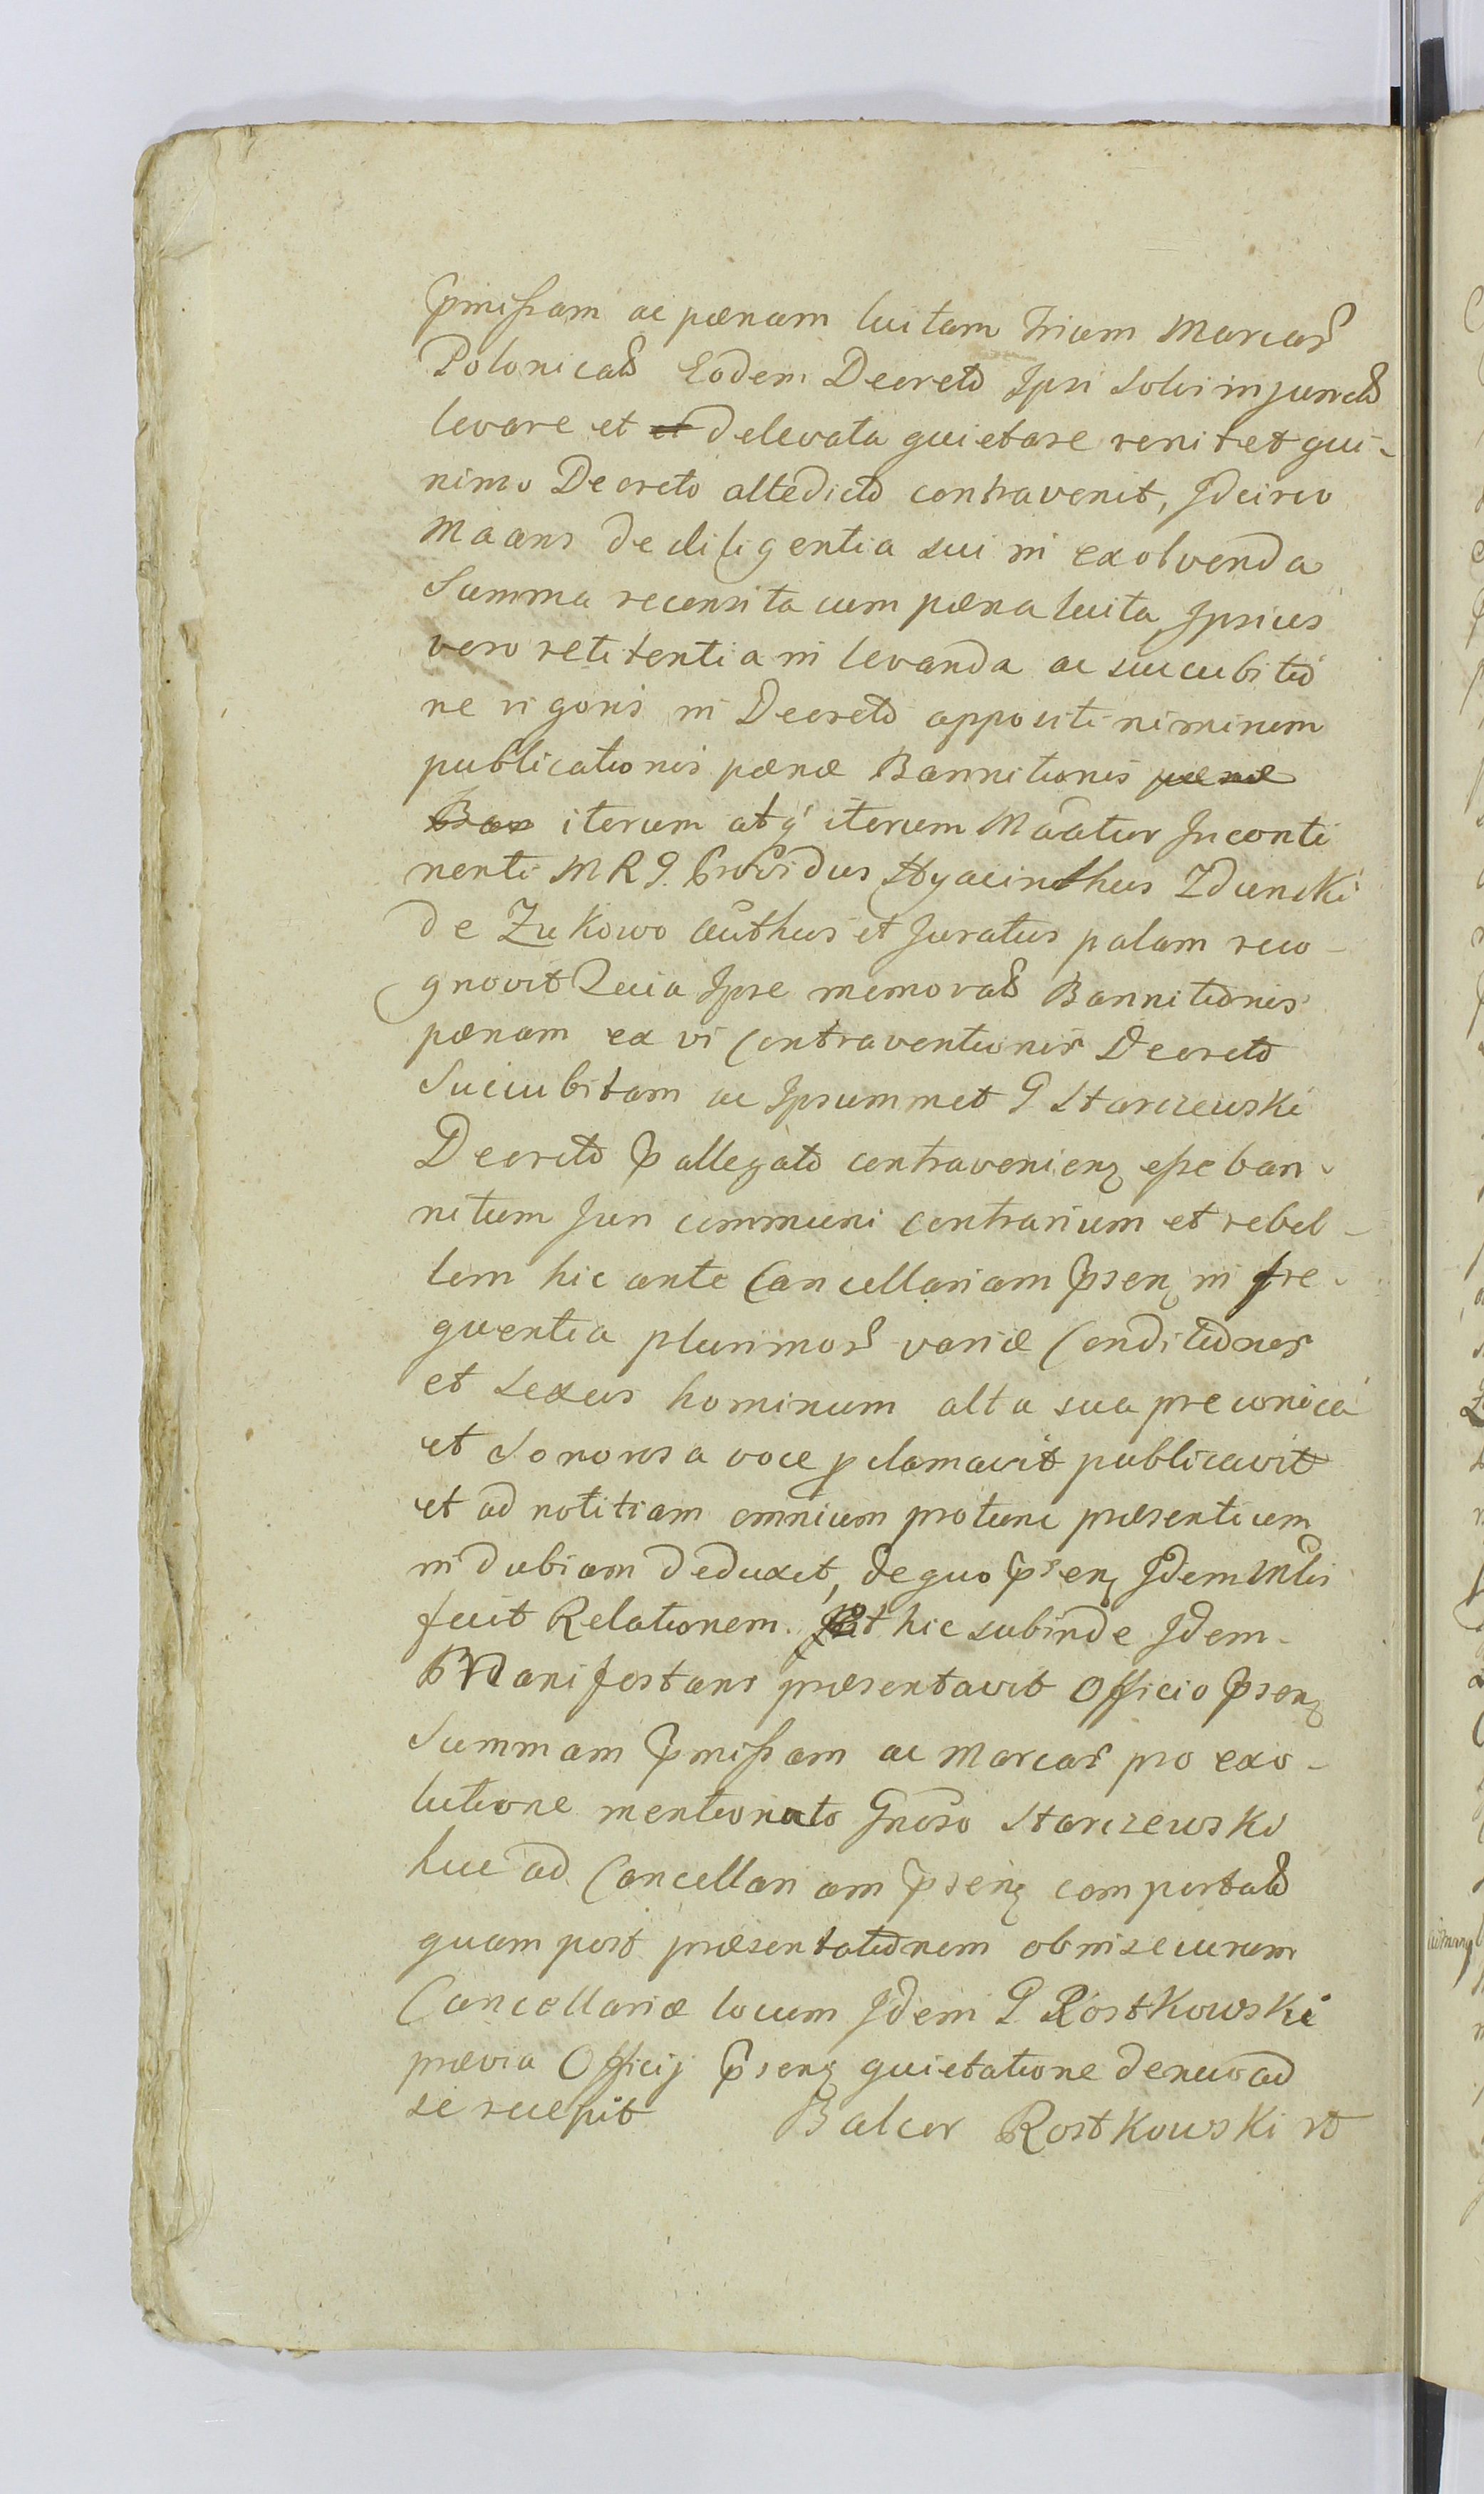 pmissam ac pænam luitam trium Marcar
Polonical Eodem Decreto Ipsi solvi injuncta
levare et et delevata quietare renitet qui-
nimo Decreto altedicto contravenit, Idcirco
Maans de diligentia sui in exolvenda
Summa recensita cum pæna luita, Ipsius
vero retitentia in levanda ac succubitio
ne vigoris in Decreto appositi nimirum
publicationis pænæ Bannitionis pænæ
Ban iterum atq iterum Maatur Inconti
nenti MRG. Providus Hyacinthus Zdunski
de Zukowo authus et Juratus palam reco-
gnovit Quia Ipse memorat Bannitionis
pænam ex vi Contraventionis Decreto
Succubitam ac Ipsummet G Starczewski
Decreto p allegato contravenienz esse ban-
nitum Juri communi contrarium et rebel-
lem hic ante Cancellariam psenz in fre-
quentia plurimor variæ Conditionis
et sexus hominum alta sua preconica
et Sonorosa voce pclamavit publicavit
et ad notitiam omnium protunc præsentium
indubiam deduxit, de quo psenz Idem Mlis
fecit Relationem. Et hic subinde Idem
Manifestans præsentavit Officio psenz
Summam pmissam ac Marcar pro exo-
lutione mentionato Gnoso Starczewski
huc ad Cancellariam psenz comportat
quam post præsentationem ob insecurum
Cancellariæ locum Idem G Rostkowski
prævia Officij psenz quietatione denuo ad
se recepit Balcer Rostkowski